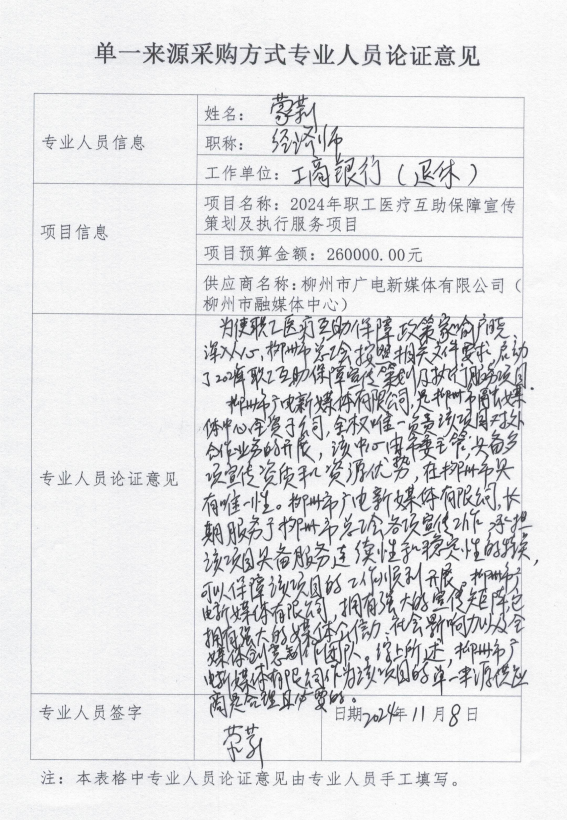 单一来源采购方式专业人员论证意见
专业人员信息
姓名：蒙莉
职称：经济师
工作单位：工商银行（退休）
项目信息
项目名称：2024年职工医疗互助保障宣传
策划及执行服务项目
项目预算金额：260000.00元
供应商名称：柳州市广电新媒体有限公司（
柳州市融媒体中心）
专业人员论证意见
为使职工医疗互助保障政策家喻户晓、
深入人心，柳州市总工会按照相关文件要求，启动
了2024年职工互助保障宣传策划及执行服务项目。
柳州市广电新媒体有限公司，是柳州市融媒
体中心全资子公司，全权唯一负责该项目对外
合作业务的开展，该中心由市委主管，具备多
项宣传资质和资源优势，在柳州市具
有唯一性。柳州市广电新媒体有限公司，长
期服务于柳州市总工会各项宣传工作，承担
该项目具备服务连续性和稳定性的特点，
可以保障该项目的工作顺利开展。柳州市广
电新媒体有限公司，拥有强大的宣传矩阵已
拥有强大的媒体公信力、社会影响力以及全
媒体创意制作团队。综上所述，柳州市广
电新媒体有限公司作为该项目的单一来源供应
商是合理且必要的。
专业人员签字
蒙莉
日期2024年11月8日
注：本表格中专业人员论证意见由专业人员手工填写。